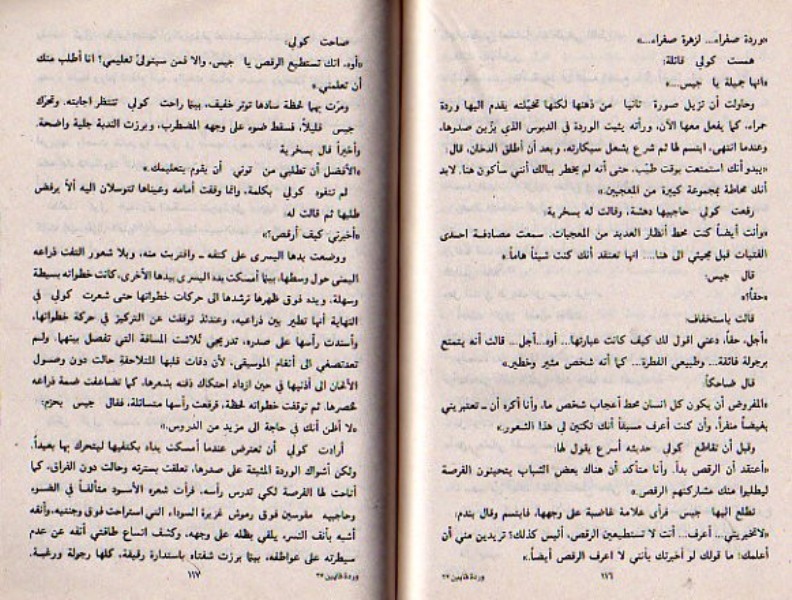 «وردة صفراء... لزهرة صفراء...»
همست كولي قائلة:
«انها جميلة يا جيس...»
وحاولت أن تزيل صورة تانيا من ذهنها لكنها تخيلته يقدم اليها وردة
حمراء، كما يفعل معها الآن، ورأته يثبت الوردة في الدبوس الذي يزّين صدرها،
وعندما انتهى، ابتسم لها ثم شرع يشعل سيكارته، وبعد أن أطلق الدخان، قال:
«يبدو أنك استمتعت بوقت طيّب، حتى أنه لم يخطر ببالك أنني سأكون هنا. لابد
أنك محاطة بمجموعة كبيرة من المعجبين.»
رفعت كولي حاجبيها دهشة، وقالت له بسخرية:
«وأنت أيضاً كنت محط أنظار العديد من المعجبات. سمعت مصادفة احدى
الفتيات قبل مجيئي الى هنا.... انها تعتقد أنك كنت شيئاً هاماً.»
قال جيس:
«حقاً!»
قالت باستخفاف:
«أجل، حقاً، دعني اقول لك كيف كانت عبارتها... أوه...أجل... قالت أنه يتمتع
برجولة فائقة... وطبيعي الفطرة... كما أنه شخص مثير وخطير.»
قال ضاحكاً:
«المفروض أن يكون كل انسان محط أعجاب شخص ما، وأنا أكره أن ـ تعتبريني
بغيضاً منفراً، وأن كنت أعرف مسبقاً أنك تكنين لي هذا الشعور.»
وقبل أن تقاطع كولي حديثه أسرع يقول لها:
«أعتقد أن الرقص بدأ، وأنا متأكد أن هناك بعض الشباب يتحينون الفرصة
ليطلبوا منك مشاركتهم الرقص.»
تطلع اليها جيس فرأى علامة غاضبة على وجهها، فابتسم وقال بندم:
«لاتخبريني... أعرف... أنت لا تستطيعين الرقص، أليس كذلك؟ تريدين مني أن
أعلمك! ما قولك لو أخبرتك بأنني لا اعرف الرقص أيضاً.»
١١٦
صاحت كولي:
«أوه. انك تستطيع الرقص يا جيس، والا فمن سيتولى تعليمي! انا أطلب منك
أن تعلمني.»
ومرّت بهما لحظة سادها توتر خفيف، بينما راحت كولي تنتظر اجابته. وتحرك
جيس قليلاً، فسقط ضوء على وجهه المضطرب، وبرزت الندبة جلية واضحة.
وأخيراً قال بسخرية
«الأفضل أن تطلبي من توني أن يقوم بتعليمك.»
لم تتفوه كولي بكلمة، وانما وقفت أمامه وعيناها تتوسلان اليه ألاّ يرفض
طلبها ثم قالت له:
«أخبرني كيف أرقص؟»
ووضعت يدها اليسرى على كتفه ـ واقتربت منه، وبلا شعور التفت ذراعه
اليمنى حول وسطها، بينما أمسكت يده اليسرى بيدها الأخرى، كانت خطواته بسيطة
وسهلة. ويده فوق ظهرها ترشدها الى حركات خطواتها حتى شعرت كولي في
النهاية أنها تطير بين ذراعيه، وعندئذ توقفت عن التركيز في حركة خطواتها،
وأسندت رأسها على صدره، تدريجي تلاشت المسافة التي تفصل بينهما. ولم
تعدتصغي الى أنغام الموسيقى، لأن دقات قلبها المتلاحقة حالت دون وصول
الألحان الى أذنيها في حين ازداد احتكاك ذقنه بشعرها، كما تضاعفت ضمة ذراعه
لخصرها. ثم توقفت خطواته لحظة، فرفعت رأسها متسائلة، فقال جيس بحزم:
«لا أظن أنك في حاجة الى مزيد من الدروس.»
أرادت كولي أن تعترض عندما أمسكت يداه بكتفيها ليتحرك بها بعيداً،
ولكن أشواك الوردة المثبتة على صدرها، تعلقت بسترته وحالت دون الفراق، كما
أتاحت لها الفرصة لكي تدرس رأسه. فرأت شعره الأسود متألقاً في الضوء
وحاجبيه مقوسين فوق رموش غزيرة السوداء التي استراحت فوق وجنتيه،وأنفه
أشبه بأنف النسر، يلقي بظله على وجهه، وكشف اتساع طاقتي أنفه عن عدم
سيطرته على عواطفه، بينما برزت شفتاه باستدارة رقيقة، كلها رجولة ورغبة.
١١٧